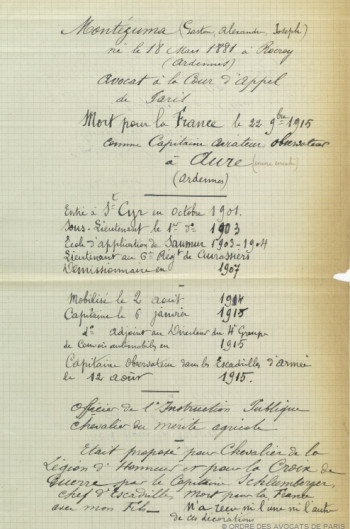 Montéguma (Gaston, Alexandre, Joseph)
né le 18 Mars 1881 à Rocroy
(Ardennes)
Avocat à la Cour d'Appel
de Paris
Mort pour la France le 22 9bre 1915
comme Capitaine aviateur observateur
à Aure
(Ardennes)
Entré à St Cyr en octobre 1901.
Sous-Lieutenant le 1er 8e 1903
Ecole d'application de Saumur 1903-1904
Lieutenant au 6e Régt de Cuirassiers
Démissionnaire en 1907
Mobilisé le 2 août 1914
Capitaine le 6 janvier 1915
do adjoint au Directeur du 4e Groupe
de Convois automobiles en 1915
Capitaine Observateur dans les Escadrilles d'Armée
le 12 août 1915.
Officier de l'Instruction Publique
Chevalier du mérite agricole
Etait proposé pour Chevalier de la
Légion d'Honneur et pour la Croix de
Guerre par le Capitaine Schlumberger
chef d'Escadrilles, mort pour la France
avec mon Fils. N'a reçu ni l'une ni l'autre
de ces décorations
© ORDRE DES AVOCATS DE PARIS